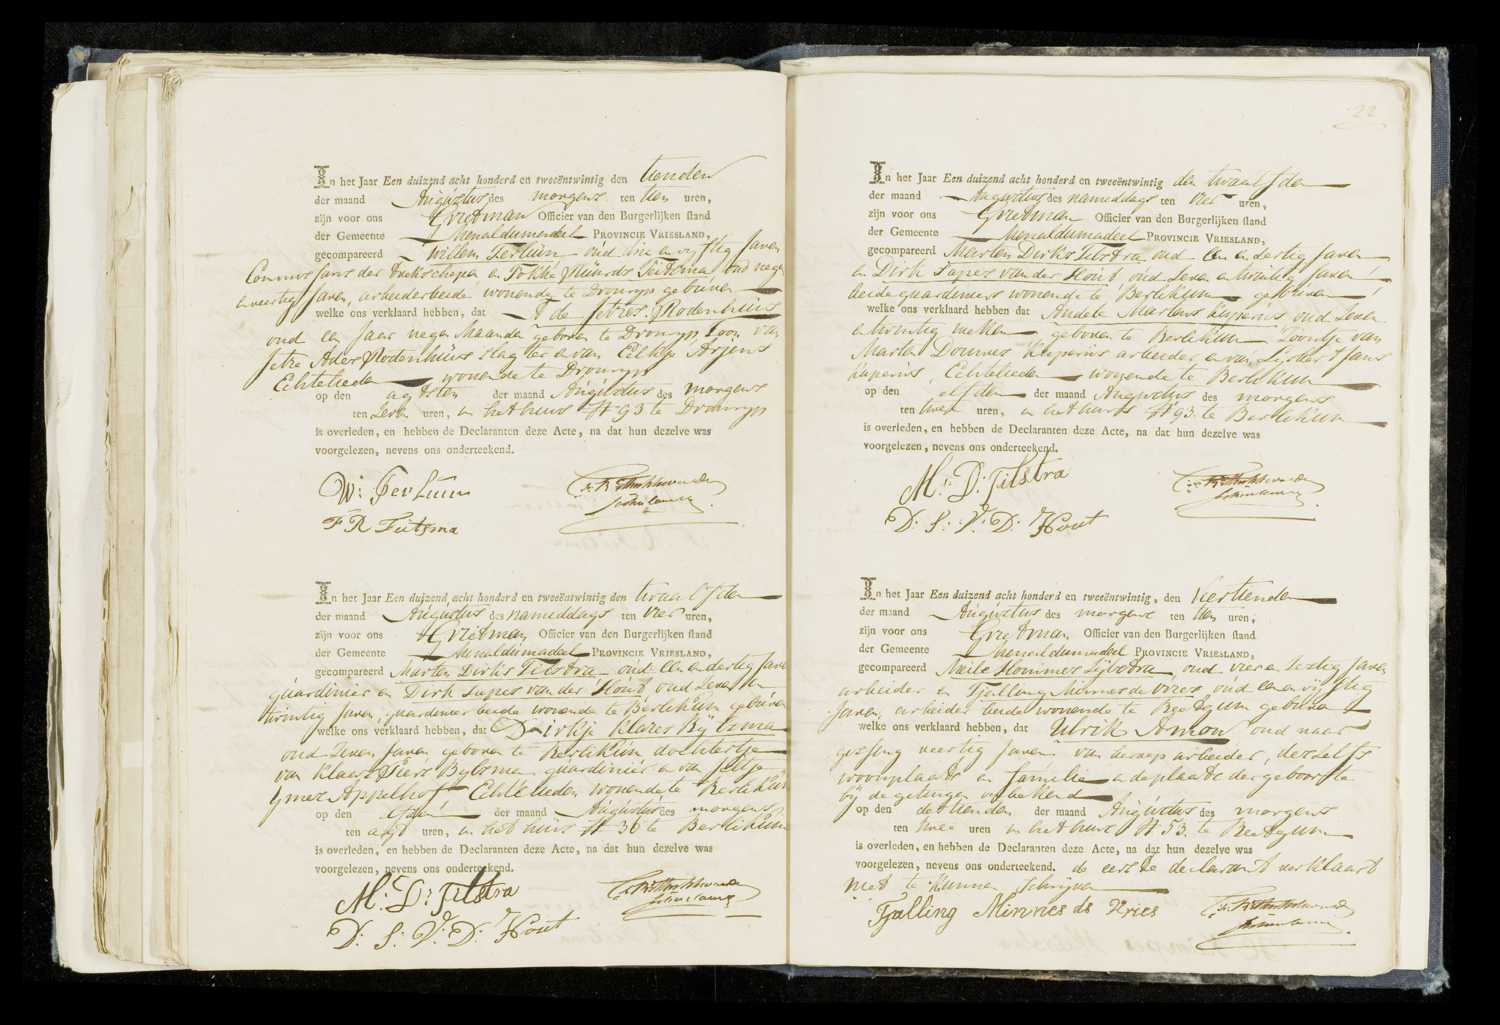 In het Jaar Een duizend acht honderd en tweeëntwintig den tienden
der maand Augustus des morgens ten tien uren,
zijn voor ons Grietman Officier van den Burgerlijken stand
der Gemeente Menaldumadeel PROVINCIE VRIESLAND,
gecompareerd Willem Terluin oud drie en vijftig Jaren
Commissaris der trekschepen en Fokke Ruurds Tuitsma oud negen
en veertig Jaren, arbeider beide wonende te Dronryp geburen
welke ons verklaard hebben, dat Ade Jetzes Rodenhuis
oud een Jaar negen Maanden geboren te Dronryp Zoon van
Jetze Ades Rodenhuis slagter en van Eelkje Arjens
Echtelieden wonende te Dronryp
op den agtsten der maand Augustus des morgens
ten zeven uren, in het huis N 93 te Dronryp
is overleden, en hebben de Declaranten deze Acte, na dat hun dezelve was
voorgelezen, nevens ons onderteekend.
W: Terluin
F R Tuitsma
In het Jaar Een duizend acht honderd en tweeëntwintig den twaalfden
der maand Augustus des nameddags ten vier uren,
zijn voor ons Grietman Officier van den Burgerlijken stand
der Gemeente Menaldumadeel PROVINCIE VRIESLAND,
gecompareerd Marten Dirks Tilstra oud een en dertig Jaren
guardinier en Dirk Sapes van der Hout oud zeven en
twintig Jaren, guardinier beide wonende te Berlikum geburen
welke ons verklaard hebben, dat Dirkje Klazes Bijlsma
oud zeven Jaren geboren te Berlikum dochtertje
van Klaas Piers Bylsma guardinier en van Jeltje
Ymes Appelhof Echtelieden wonende te Berlikum
op den elfden der maand Augustus des morgens
ten agt uren, in het huis N 36 te Berlikum
is overleden, en hebben de Declaranten deze Acte, na dat hun dezelve was
voorgelezen, nevens ons onderteekend.
M: D: Tilstra
D: S: V: D: Hout
22
In het Jaar Een duizend acht honderd en tweeëntwintig den twaalfden
der maand Augustus des nameddags ten vier uren,
zijn voor ons Grietman Officier van den Burgerlijken stand
der Gemeente Menaldumadeel PROVINCIE VRIESLAND,
gecompareerd Marten Dirks Tilstra oud een en dertig Jaren
en Dirk Sapes van der Hout oud zeven en twintig Jaren
beide guardiniers wonende te Berlikum geburen
welke ons verklaard hebben dat Andele Martens Kuperus oud zeven
en twintig weken geboren te Berlikum Zoontje van
Marten Douwes Kuperus arbeider en van Jans
Kuperus, Echtelieden wonende te Berlikum
op den elfden der maand Augustus des morgens
ten twee uren, in het huis N 93 te Berlikum
is overleden, en hebben de Declaranten deze Acte, na dat hun dezelve was
voorgelezen, nevens ons onderteekend.
M: D: Tilstra
D: S: V: D: Hout
In het Jaar Een duizend acht honderd en tweeëntwintig, den veertienden
der maand Augustus des morgens ten tien uren,
zijn voor ons Grietman Officier van den Burgerlijken stand
der Gemeente Menaldumadeel PROVINCIE VRIESLAND,
gecompareerd Meile Hommes Sijbstra, oud vier en zestig Jaren
arbeider en Tjalling Minnes de Vries, oud een en vijftig
Jaren, arbeider beide wonende te Beetgum geburen
welke ons verklaard hebben, dat Ulrik Amon oud naar
gissing veertig Jaren van beroep arbeider, deszelfs
woonplaats en familie en de plaats der geboorte
bij de getuigen onbekend
op den dertienden der maand Augustus des morgens
ten twee uren in het huis N 53 te Beetgum
is overleden, en hebben de Declaranten deze Acte, na dat hun dezelve was
voorgelezen, nevens ons onderteekend. de eerste declarant verklaard
niet te kunnen schrijven
Tjalling Minnes de Vries